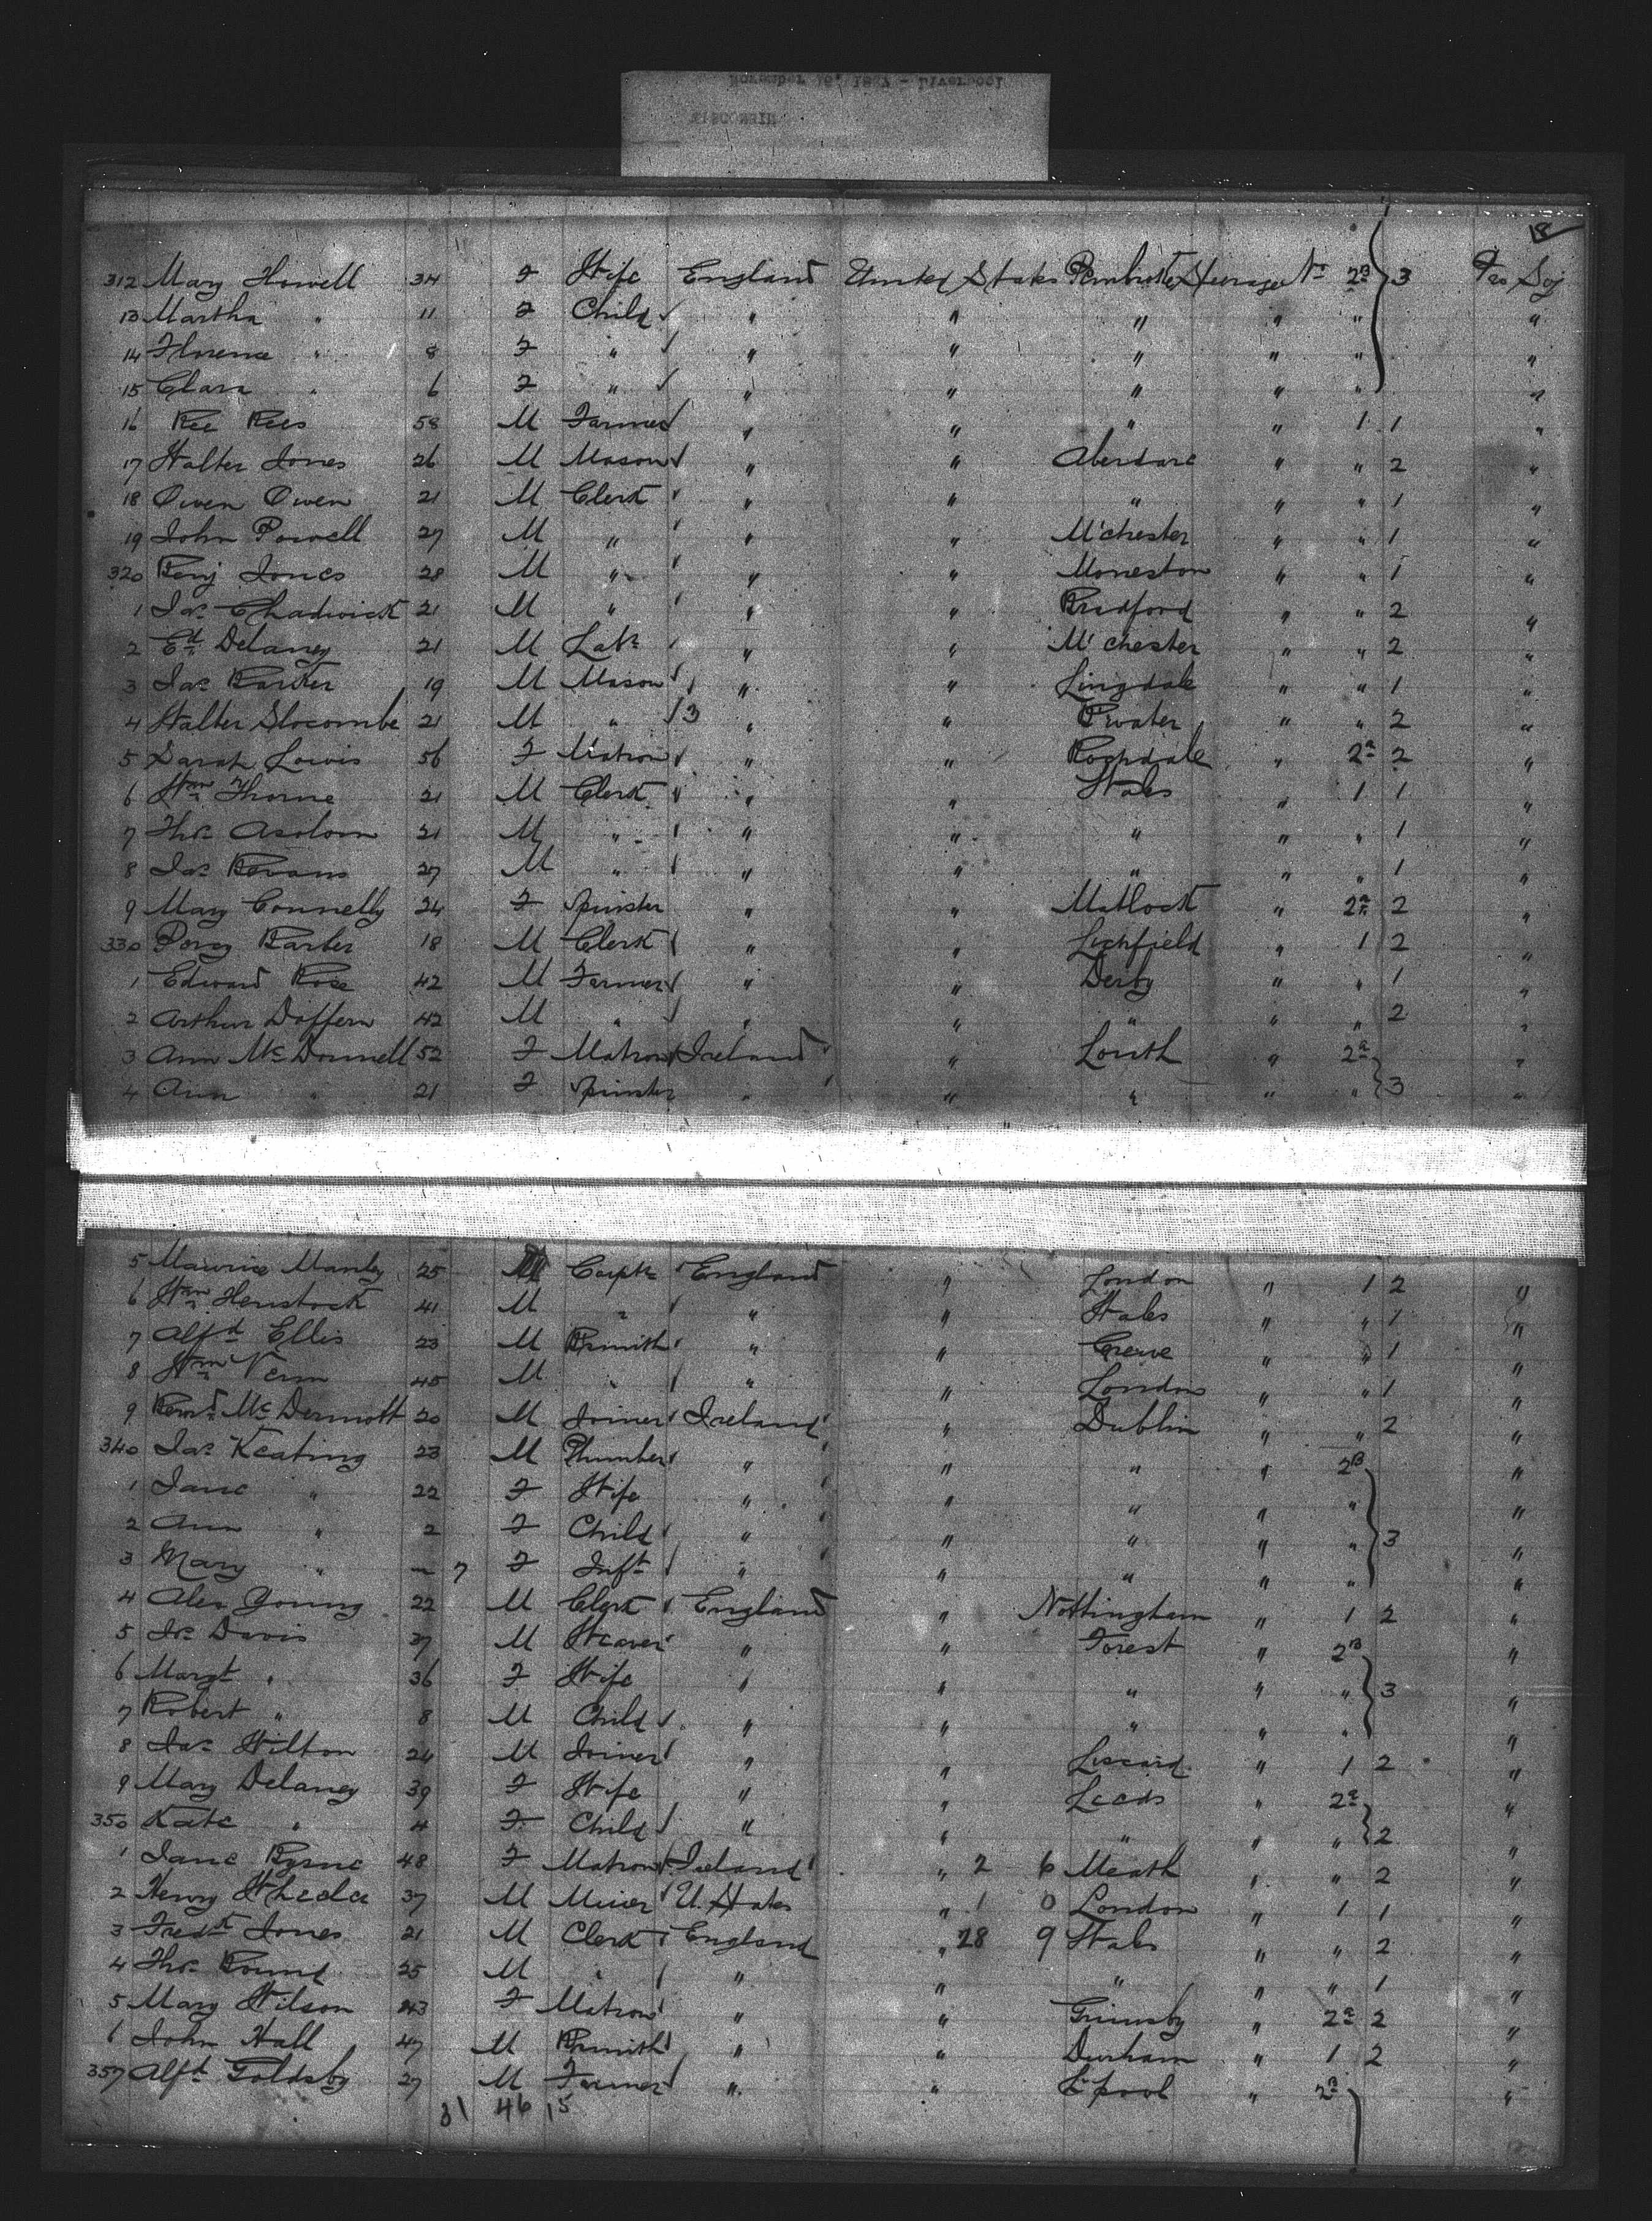 November 16, 1887 - Liverpool
WISCONSIN
8
312 Mary Howell 34 F Wife England United States Pembroke Steerage 2B 3 Pro Soj
13 Martha " 11 F Child " " " " " "
14 Florence " 8 F " " " " " " "
15 Clara " 6 F " " " " " " "
16 Ree Rees 58 M Farmer " " " " 1 1 "
17 Walter Jones 26 M Mason " " Aberdare " " 2 "
18 Owen Owen 21 M Clerk " " " " " 1 "
19 John Powell 27 M " " " M'chester " " 1 "
320 Benj Jones 28 M " " " Moneston " " 1 "
1 Jas Chadwick 21 M " " " Bradford " " 2 "
2 Ed Delaney 21 M Labr " " M'chester " " 2 "
3 Jas Barker 19 M Mason " " Lingdale " " 1 "
4 Walter Slocombe 21 M " 3 " " " " 2 "
5 Sarah Lewis 56 F Matron " " Rochdale " 2a 2 "
6 Wm Thorne 21 M Clerk " " Wales " 1 1 "
7 Thos Asolom 21 M " " " " " " 1 "
8 Jas Bevans 27 M " " " " " " 1 "
9 Mary Connelly 24 F Spinster " " Matlock " 2a 2 "
330 Percy Barber 18 M Clerk " " Lichfield " 1 2 "
1 Edward Rose 42 M Farmer " " Derby " " 1 "
2 Arthur Doffern 42 M " " " " " " 2 "
3 Ann McDonnell 52 F Matron Ireland " Louth " 2a "
4 Ann " 21 F Spinster " " " " " 3 "
5 Maurice Manley 25 M Carptr England " London " 1 2 "
6 Wm Henstock 41 M " " " Wales " " 1 "
7 Alfd Ellis 23 M Bsmith " " Crewe " " 1 "
8 Wm Venn 45 M " " " London " " 1 "
9 Bernd McDermott 20 M Joiner Ireland " Dublin " " 2 "
340 Jas Keating 23 M Plumber " " " " 2B "
1 Jane " 22 F Wife " " " " " "
2 Ann " 2 F Child " " " " " 3 "
3 Mary " - 7 F Inft " " " " " "
4 Alex Young 22 M Clerk England " Nottingham " 1 2 "
5 Jno Davis 37 M Weaver " " Forest " 2B "
6 Margt " 36 F Wife " " " " " 3 "
7 Robert " 8 M Child " " " " " "
8 Jas Hilton 24 M Joiner " " Liscard " 1 2 "
9 Mary Delaney 39 F Wife " " Leeds " 2a "
350 Kate " 4 F Child " " " " " 2 "
1 Jane Byrne 48 F Matron Ireland " 2 6 Meath " " 2 "
2 Henry 37 M Miner U. States " 1 0 London " 1 1 "
3 Fredk Jones 21 M Clerk England " 28 9 Wales " " 2 "
4 Thos Pound 25 M " " " " " " 1 "
5 Mary Wilson 43 F Matron " " Grimsby " 2a 2 "
6 John Hall 47 M Bsmith " " Durham " 1 2 "
357 Alfd Goldsby 27 M Farmer " " L'pool " 2B "
31 46 15